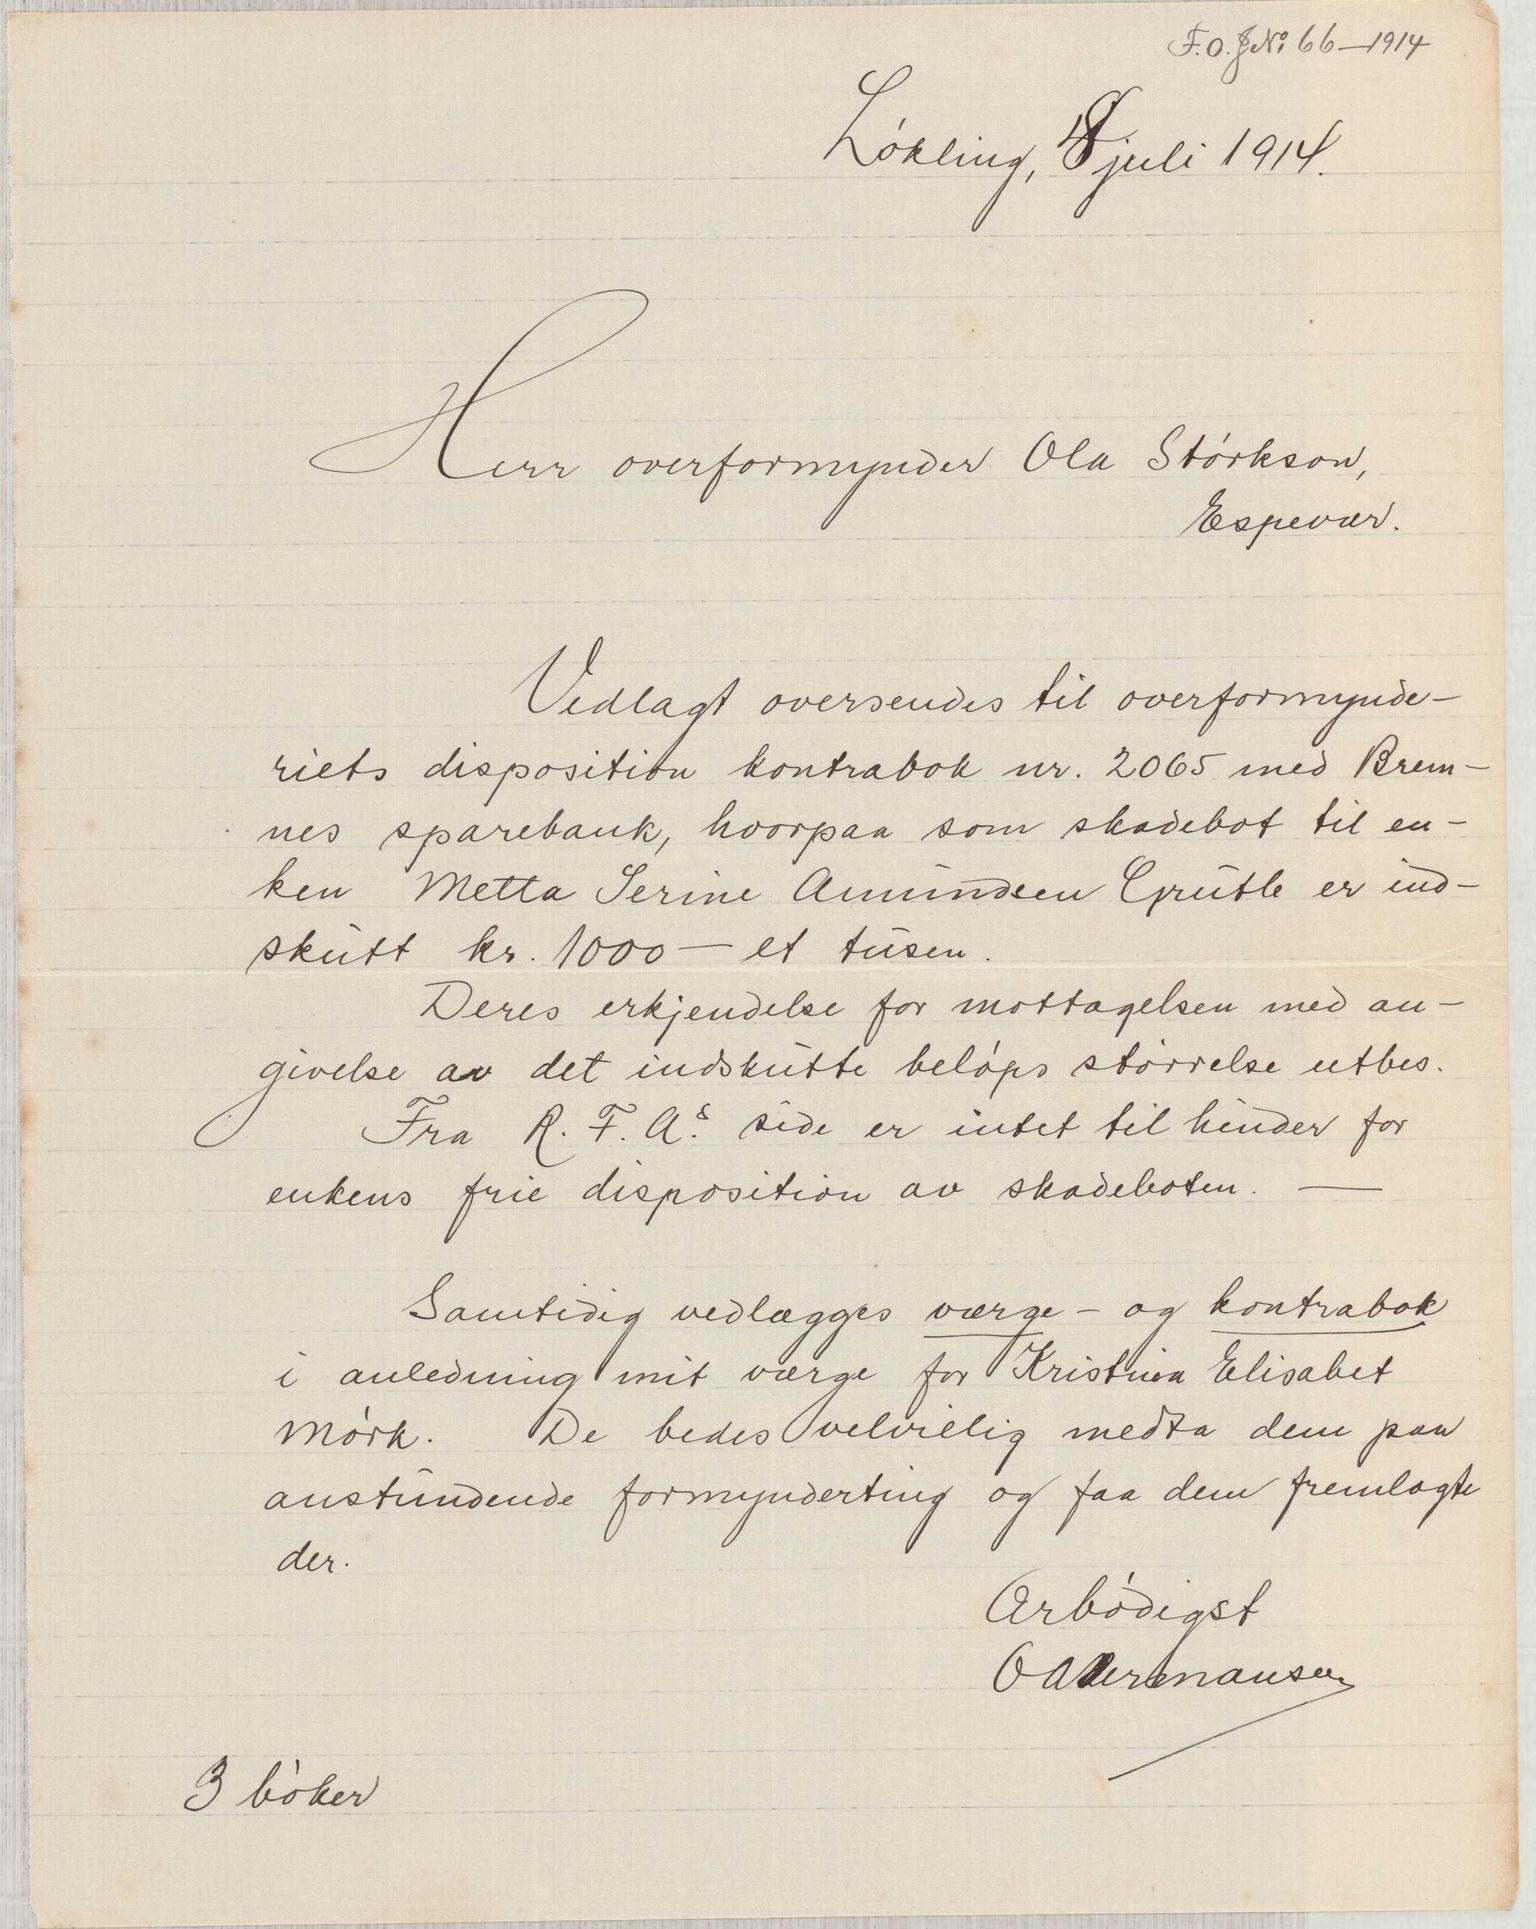 F.O.J No 66—1914
Lókling, 8 juli 1914.
Herr overformynder Ola Störkson,
Espevær.
Vedlagt oversendes til overformynde-
riets disposition kontrabok nr. 2065 med Brem-
nes sparebank, hvorpaa som skadebot til en-
ken Metta Serine Amundsen Grutle er ind-
skutt kr. 1000 — et tusen.
Deres erkjendelse for mottagelsen med an-
givelse av det indskutte beløps størrelse utbes.
Fra R. F. A.s side er intet til hinder for
enkens frie disposition av skadeboten. —
Samtidig vedlægges værge- og kontrabok
i anledning mit værge for Kristina Elisabet
Mørk. De bedes velvillig medta dem paa
anstundende formynderting og faa dem fremlagte
der.
Ærbødigst
3 bøker